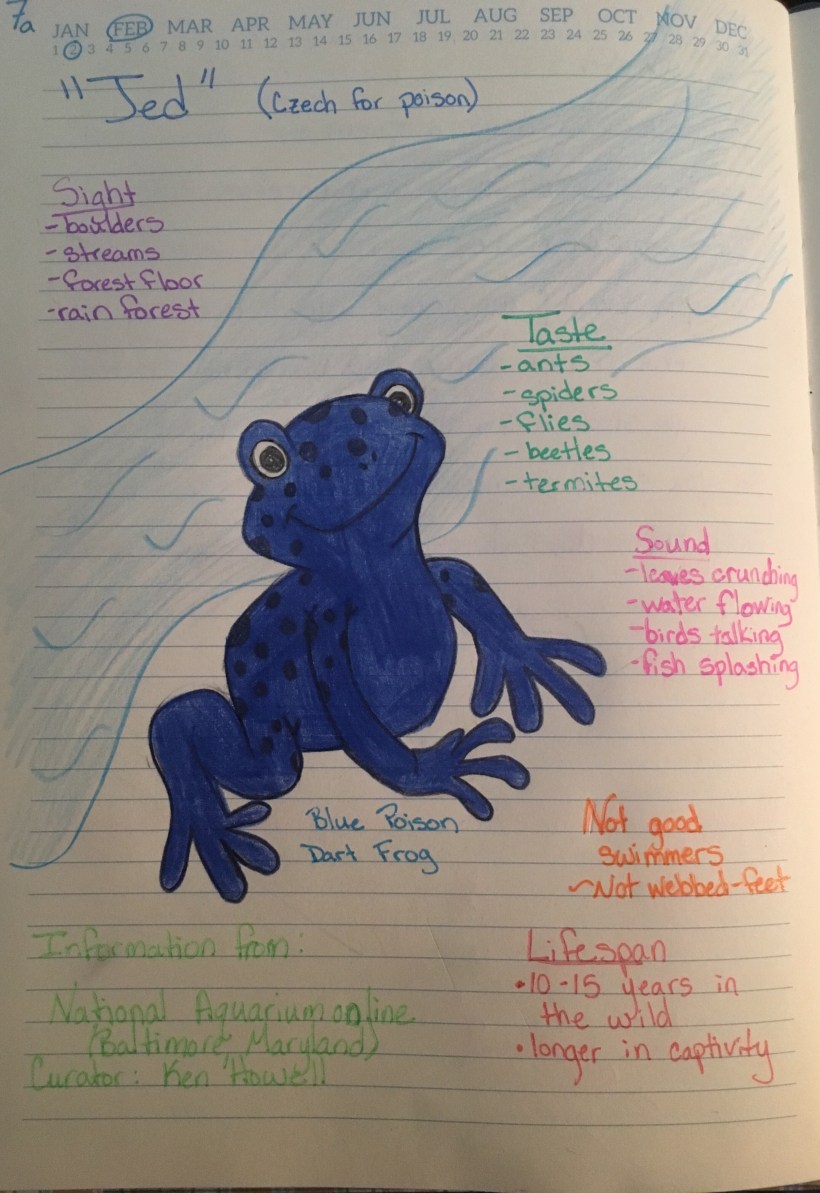 7a
JAN FEB MAR APR MAY JUN JUL AUG SEP OCT NOV DEC
1 2 3 4 5 6 7 8 9 10 11 12 13 14 15 16 17 18 19 20 21 22 23 24 25 26 27 28 29 30 31
"Jed" (Czech for poison)
Sight
-boulders
-streams
-forest floor
-rain forest
Taste
-ants
-spiders
-flies
-beetles
-termites
Sound
-leaves crunching
-water flowing
-birds talking
-fish splashing
Blue Poison
Dart Frog
Not good
swimmers
~Not webbed-feet
Information from:
National Aquarium online
(Baltimore, Maryland)
Curator: Ken Howell
Lifespan
•10-15 years in
the wild
•longer in captivity